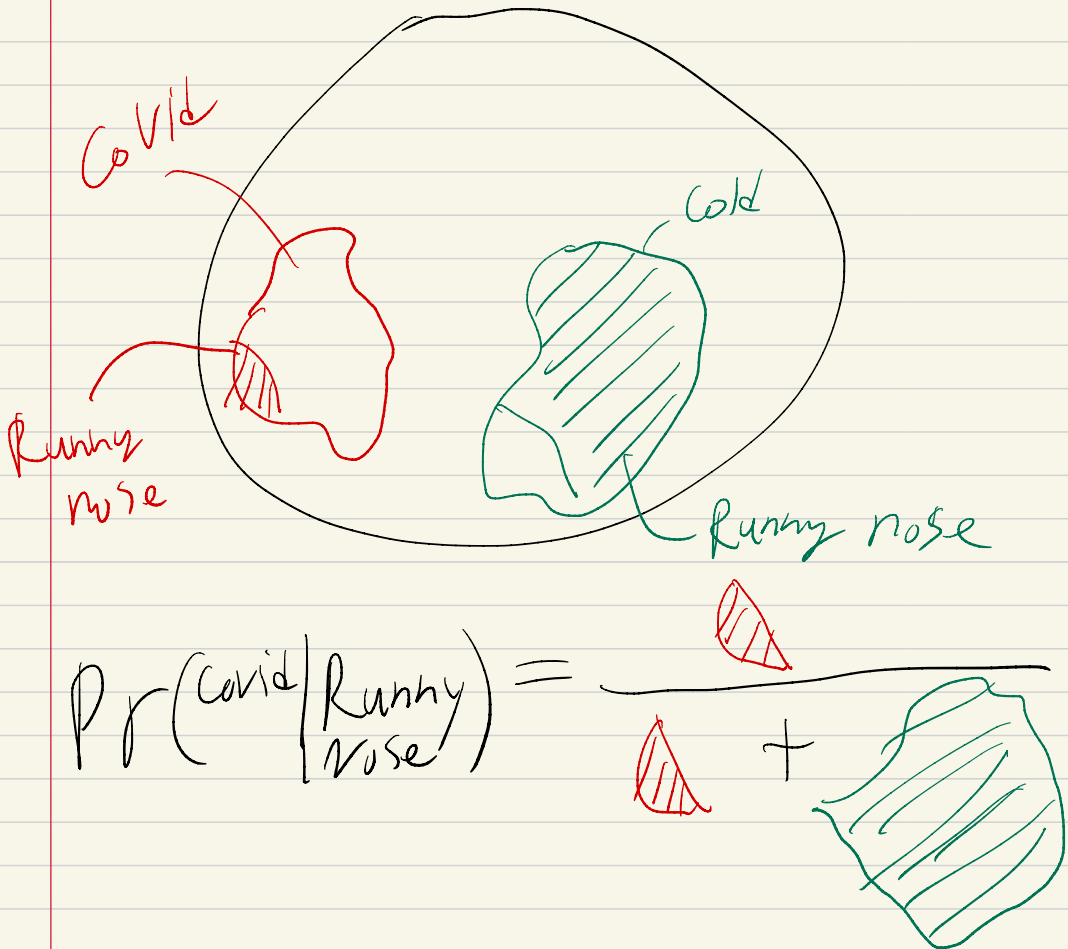 Covid
Cold
Runny
nose
Runny nose
Pr(Covid|Runny
Nose) =
+